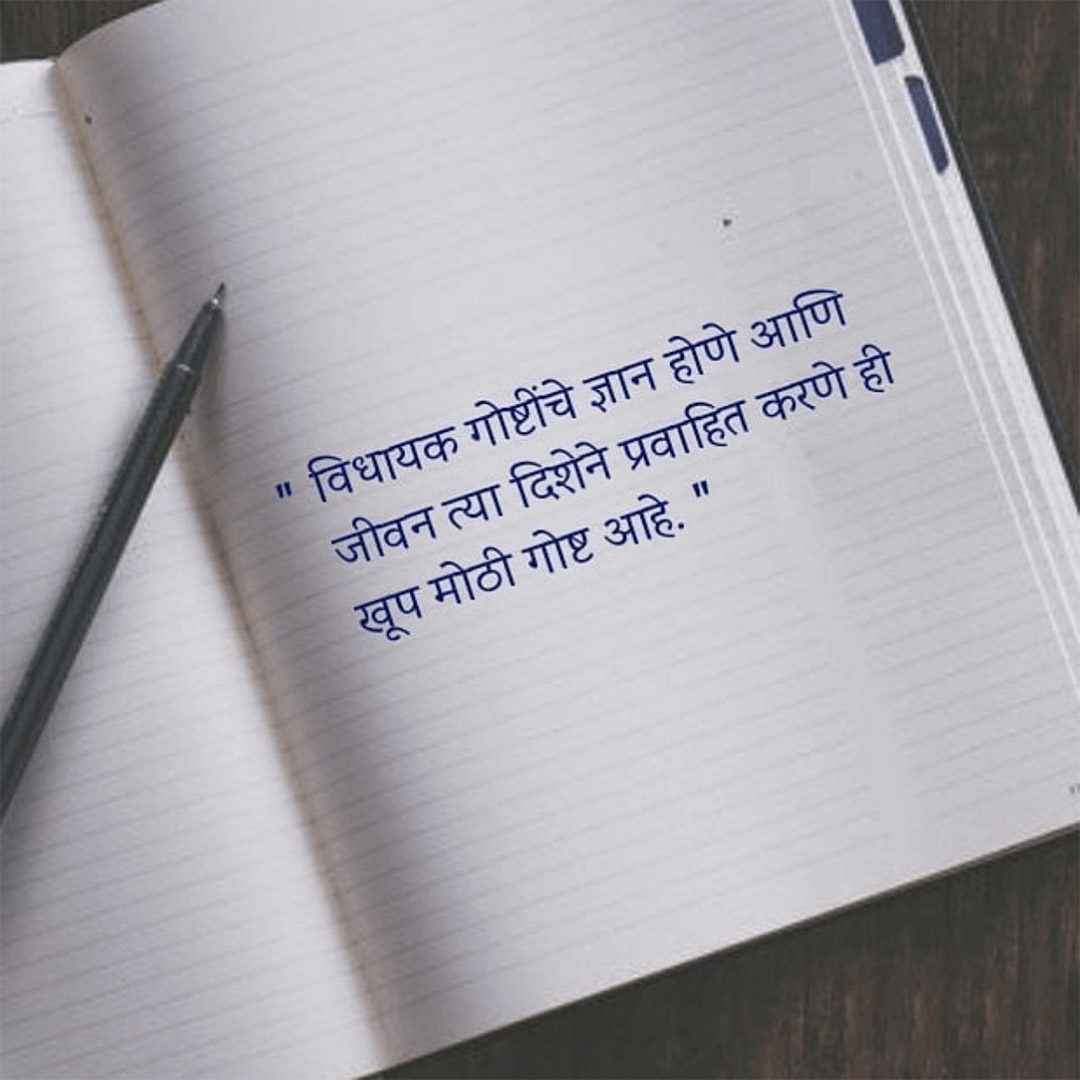 " विधायक गोष्टींचे ज्ञान होणे आणि
जीवन त्या दिशेने प्रवाहित करणे ही
खूप मोठी गोष्ट आहे. "